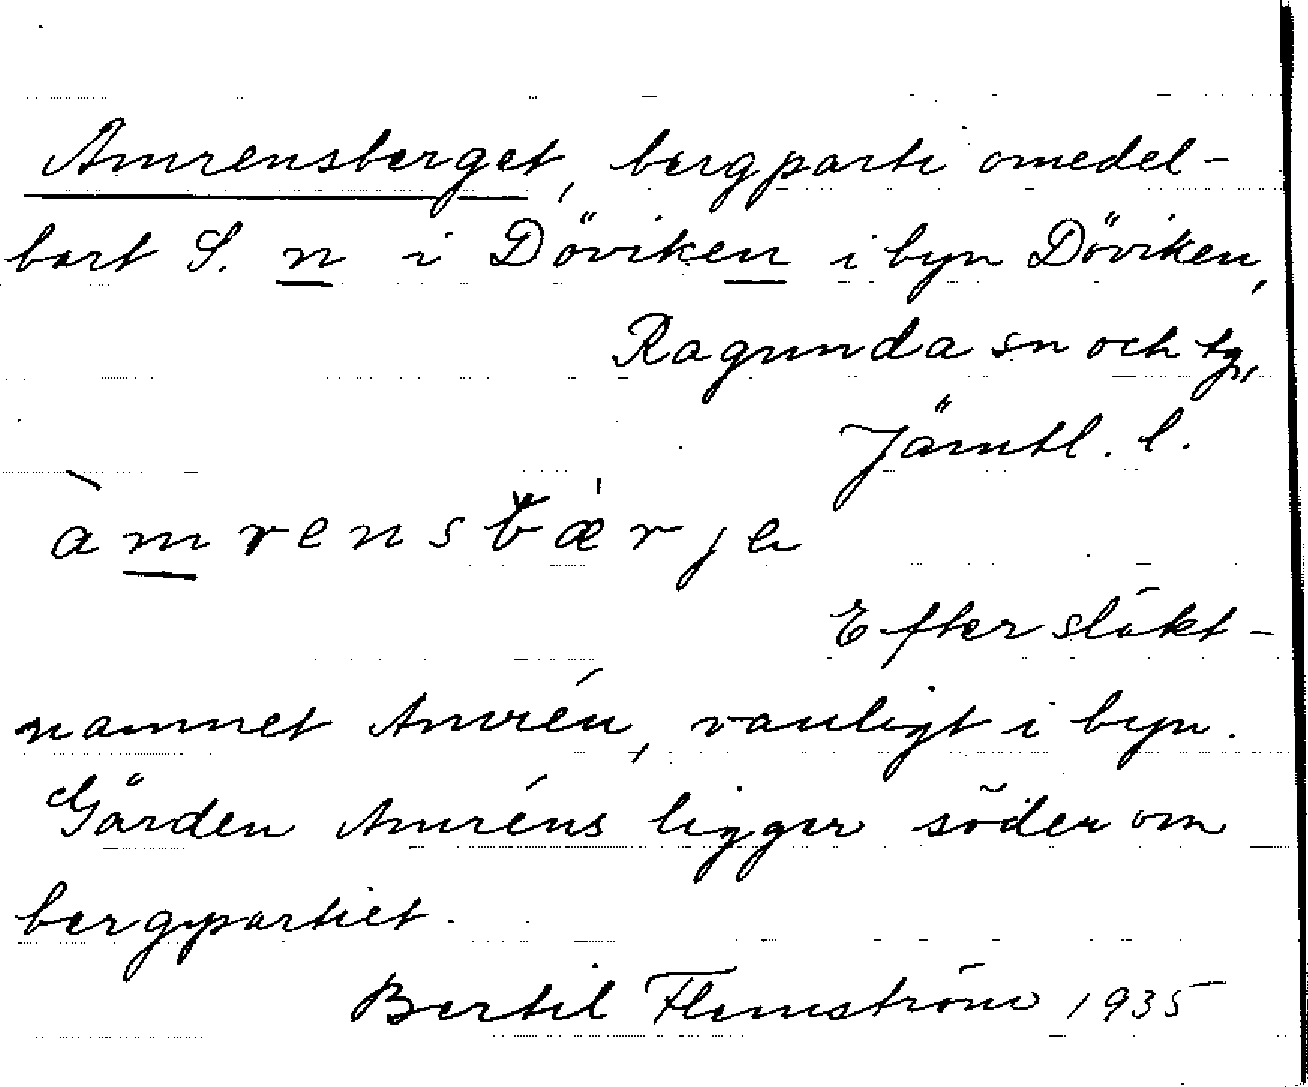 Amrensberget, bergparti omedel-
bart S. n i Döviken i byn Döviken,
Ragunda sn och tg,
Jämtl. l.
àmrensbærje
Efter släkt-
namnet Amrén, vanligt i byn.
Gården Amréns ligger söder om
bergpartiet.
Bertil Flemström 1935